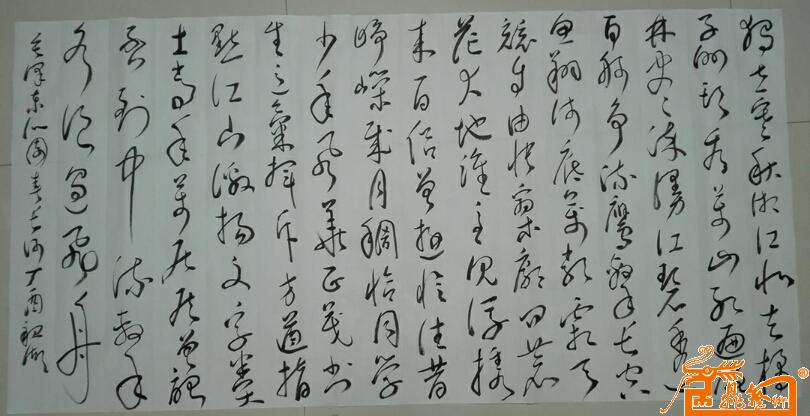 独立寒秋湘江北去橘
子洲头看万山红遍层
林尽染漫江碧透
百舸争流鹰击长空
鱼翔浅底万类霜天
竞自由怅寥廓问苍
茫大地谁主沉浮携
来百侣曾游忆往昔
峥嵘岁月稠恰同学
少年风华正茂书
生意气挥斥方遒指
点江山激扬文字粪
土当年万户侯曾记
否到中流击水
浪遏飞舟
毛泽东沁园春长沙丁酉